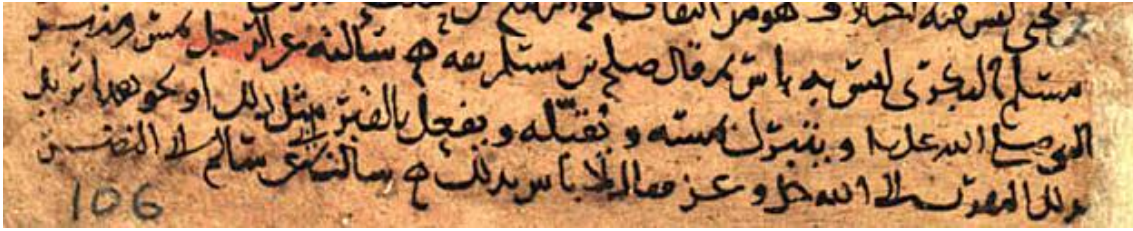 هو من الثقات
مسلم ليس به باس قال صلح بن مسلم ثقه ه سألته عن الرجل يمس منبر
النبي صلى الله عليه و يتبرك بمسه و يقبّله و يفعل بالقبر مثل ذلك او نحو هذا يريد
بذلك التقرب الى الله جل وعز فقال لا باس بذلك ه سالته عن سالم ابي النضر
106